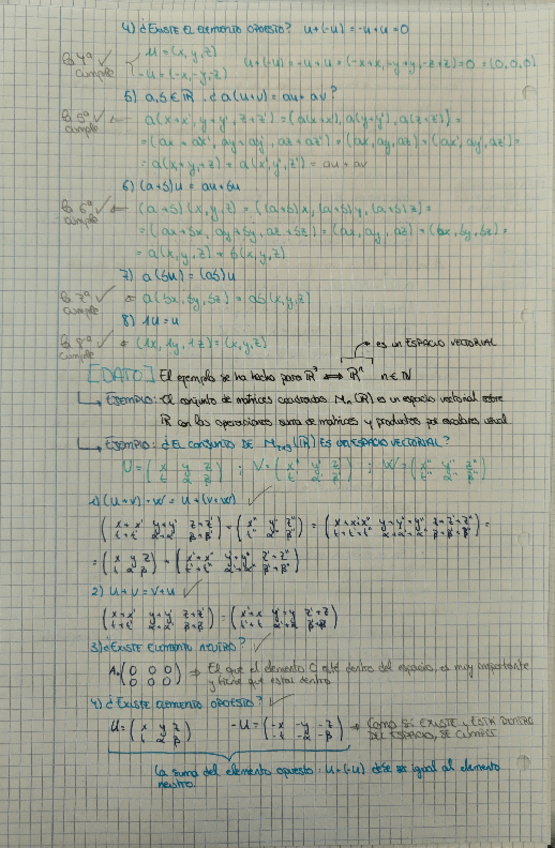 4) ¿EXISTE EL ELEMENTO OPUESTO? u+(-u) = -u+u = 0
La 4º ✓ cumple
u = (x, y, z)
-u = (-x, -y, -z)
u+(-u) = -u+u = (-x+x, -y+y, -z+z) = 0 = (0,0,0)
5) a, b ∈ ℝ, ¿a(u+v) = au + av?
La 5º ✓ cumple
a(x+x', y+y', z+z') = (a(x+x'), a(y+y'), a(z+z')) =
= (ax + ax', ay + ay', az + az') = (ax, ay, az) + (ax', ay', az') =
= a(x, y, z) + a(x', y', z') = au + av
6) (a+b)u = au + bu
La 6º ✓ cumple
(a+b)(x, y, z) = ((a+b)x, (a+b)y, (a+b)z) =
= (ax + bx, ay + by, az + bz) = (ax, ay, az) + (bx, by, bz) =
= a(x, y, z) + b(x, y, z)
7) a(bu) = (ab)u
La 7º ✓ cumple
a(bx, by, bz) = ab(x, y, z)
8) 1u = u
La 8º ✓ cumple
(1x, 1y, 1z) = (x, y, z)
es un ESPACIO VECTORIAL
[DATO] El ejemplo se ha hecho para ℝ³ ⟺ ℝⁿ n ∈ ℕ
EJEMPLO: el conjunto de matrices cuadradas Mn(ℝ) es un espacio vectorial sobre
ℝ con las operaciones suma de matrices y productos por escalares usual.
EJEMPLO: ¿EL CONJUNTO DE M2x3(ℝ) ES UN ESPACIO VECTORIAL?
U = (x y z ; t α β) ; V = (x' y' z' ; t' α' β') ; W = (x'' y'' z'' ; t'' α'' β'')
1) (U+V)+W = U+(V+W) ✓
(x+x' y+y' z+z' ; t+t' α+α' β+β') + (x'' y'' z'' ; t'' α'' β'') = (x+x'+x'' y+y'+y'' z+z'+z'' ; t+t'+t'' α+α'+α'' β+β'+β'') =
= (x y z ; t α β) + (x'+x'' y'+y'' z'+z'' ; t'+t'' α'+α'' β'+β'')
2) U+V = V+U ✓
(x+x' y+y' z+z' ; t+t' α+α' β+β') = (x'+x y'+y z'+z ; t'+t α'+α β'+β)
3) ¿EXISTE ELEMENTO NEUTRO? ✓
(0 0 0 ; 0 0 0) → El que el elemento 0 esté dentro del espacio, es muy importante
y tiene que estar dentro
4) ¿EXISTE ELEMENTO OPUESTO? ✓
U = (x y z ; t α β) -U = (-x -y -z ; -t -α -β) → COMO SÍ EXISTE y ESTÁ DENTRO
DEL ESPACIO, SE CUMPLE
La suma del elemento opuesto: U+(-U) debe ser igual al elemento
neutro.